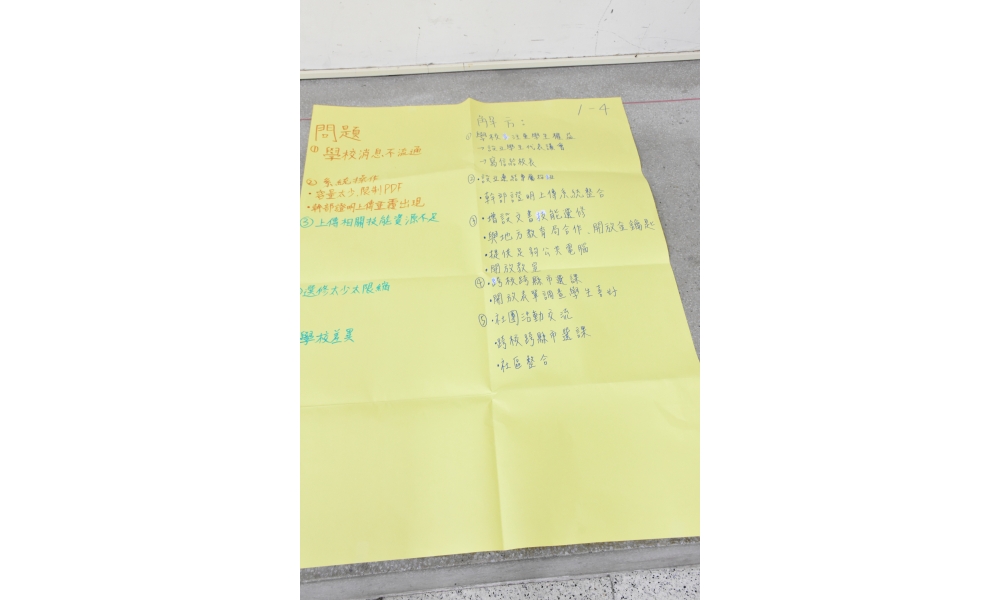 問題
① 學校消息不流通
② 系統操作
・容量太少,限制PDF
・幹部證明上傳重覆出現
③ 上傳相關技能資源不足
選修太少太限縮
學校差異
1-4
解方:
學校 注重學生權益
→設立學生代表議會
→寫信給校長
②・設立
・幹部證明上傳系統整合
③・增設文書技能選修
・與地方教育局合作、開放金鑰匙
・提供足夠公共電腦
・開放教室
④・跨校跨縣市選課
・開放表單調查學生喜好
⑤・社團活動交流
・跨校跨縣市選課
・社區整合